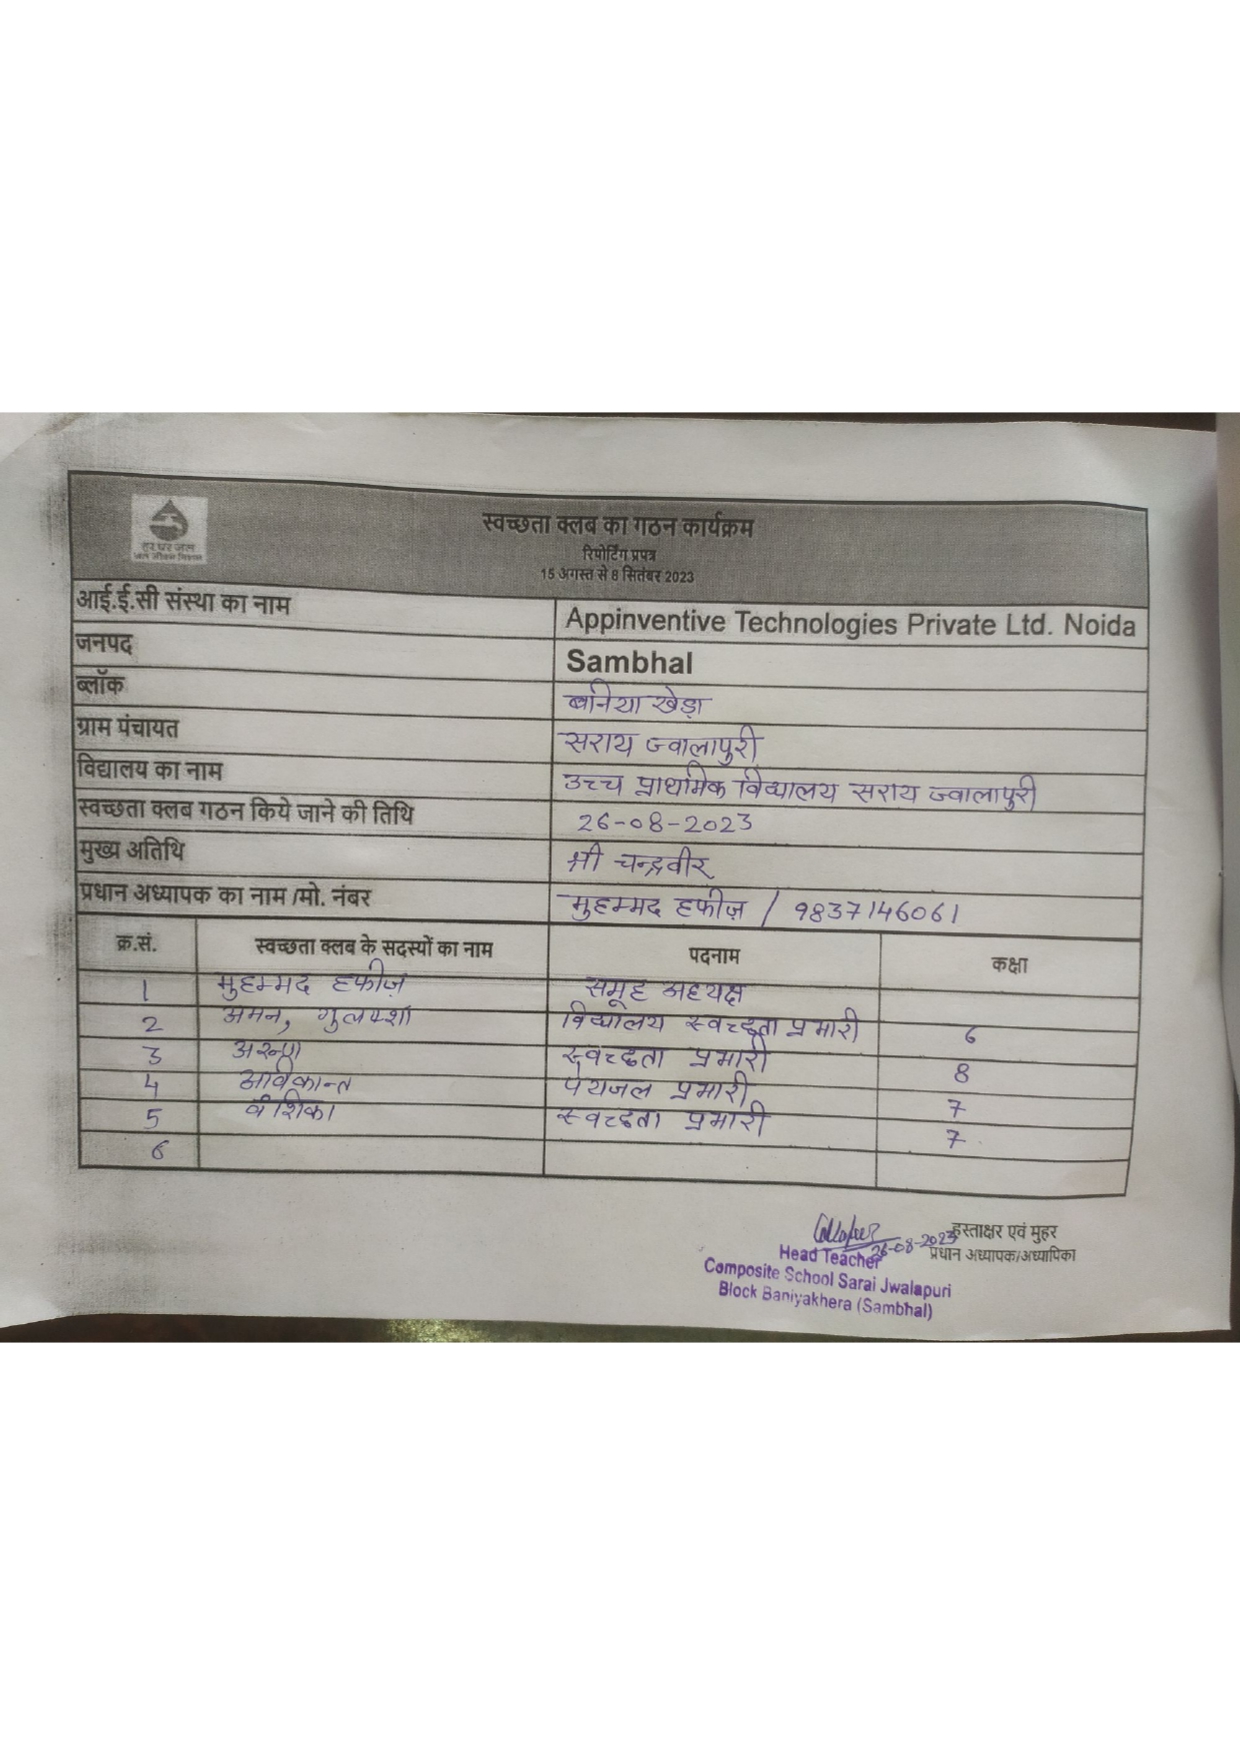 हर घर जल
जल जीवन मिशन
स्वच्छता क्लब का गठन कार्यक्रम
रिपोर्टिंग प्रपत्र
15 अगस्त से 8 सितंबर 2023
आई.ई.सी संस्था का नाम Appinventive Technologies Private Ltd. Noida
जनपद Sambhal
ब्लॉक बनिया खेड़ा
ग्राम पंचायत सराय ज्वालापुरी
विद्यालय का नाम उच्च प्राथमिक विद्यालय सराय ज्वालापुरी
स्वच्छता क्लब गठन किये जाने की तिथि 26-08-2023
मुख्य अतिथि श्री चन्द्रवीर
प्रधान अध्यापक का नाम /मो. नंबर मुहम्मद हफीज़ / 9837146061
क्र.सं. स्वच्छता क्लब के सदस्यों का नाम पदनाम कक्षा
1 मुहम्मद हफीज़ समूह अध्यक्ष
2 अमन, विद्यालय स्वच्छता प्रभारी 6
3 स्वच्छता प्रभारी 8
4 पेयजल प्रभारी 7
5 वंशिका स्वच्छता प्रभारी 7
6
26-08-2023 हस्ताक्षर एवं मुहर
प्रधान अध्यापक/अध्यापिका
Head Teacher
Composite School Sarai Jwalapuri
Block Baniyakhera (Sambhal)